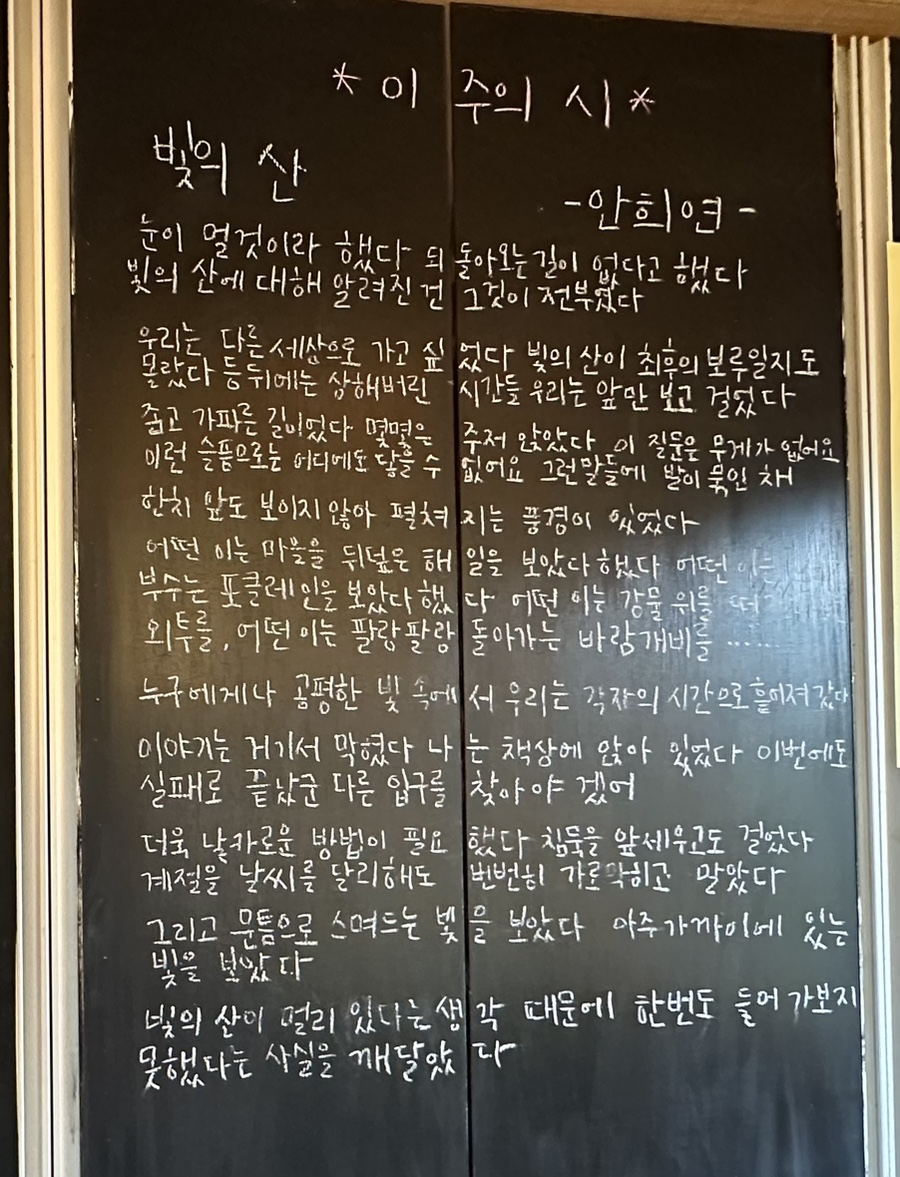 * 이 주의 시 *
빛의 산
- 안희연 -
눈이 멀것이라 했다 되돌아오는 길이 없다고 했다
빛의 산에 대해 알려진 건 그것이 전부였다
우리는 다른 세상으로 가고 싶었다 빛의 산이 최후의 보루일지도
몰랐다 등 뒤에는 상해버린 시간들 우리는 앞만 보고 걸었다
좁고 가파른 길이었다 몇몇은 주저 앉았다 이 질문은 무게가 없어요
이런 슬픔으로는 어디에도 닿을 수 없어요 그런 말들에 발이 묶인 채
한치 앞도 보이지 않아 펼쳐지는 풍경이 있었다
어떤 이는 마을을 뒤덮은 해일을 보았다 했다 어떤 이는
부수는 포클레인을 보았다 했다 어떤 이는 강물 위를
외투를, 어떤 이는 팔랑팔랑 돌아가는 바람개비를 ......
누구에게나 공평한 빛 속에서 우리는 각자의 시간으로 흩어져 갔다
이야기는 거기서 막혔다 나는 책상에 앉아 있었다 이번에도
실패로 끝났군 다른 입구를 찾아야 겠어
더욱 날카로운 방법이 필요했다 침묵을 앞세우고도 걸었다
계절을 날씨를 달리해도 번번히 가로막히고 말았다
그리고 문틈으로 스며드는 빛을 보았다 아주 가까이에 있는
빛을 보았다
빛의 산이 멀리 있다는 생각 때문에 한번도 들어가보지
못했다는 사실을 깨달았다